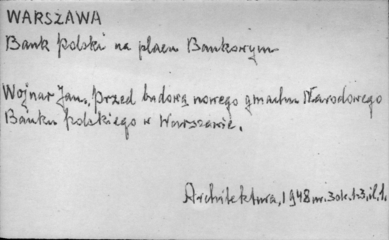 WARSZAWA
Bank Polski na placu Bankowym
Wojnar Jan, Przed budową nowego gmachu Narodowego
Banku Polskiego w Warszawie.
Architektura, 1948 nr. 3 ok. 1-3, il. 1.